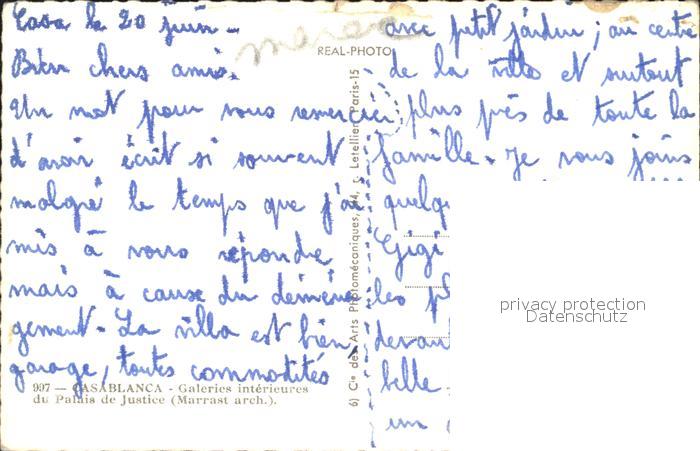 Casa le 20 juin -
Bien chers amis.
Un mot pour vous remercier
d'avoir écrit si souvent
malgré le temps que j'ai
mis à vous répondre
mais à cause du déména-
gement. La villa est bien,
garage, toutes commodités
avec petit jardin ; au centre
de la ville et surtout
plus près de toute la
famille. Je vous joins
quelq
Gigi
les p
devan
belle
un
maroc
REAL-PHOTO
6) Cie des Arts Photomécaniques, 44, r. Letellier, Paris-15
997 — CASABLANCA - Galeries intérieures
du Palais de Justice (Marrast arch.).
privacy protection
Datenschutz